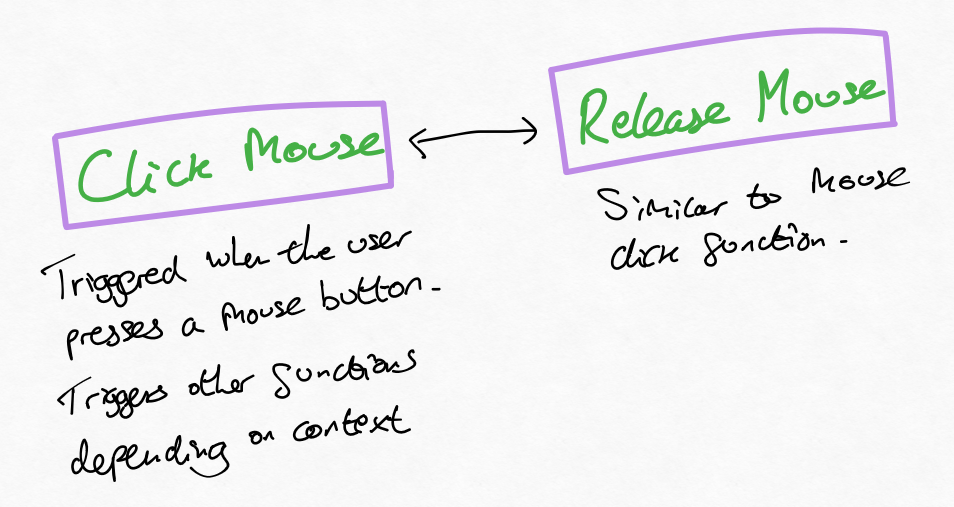 Click Mouse
Release Mouse
Triggered when the user
presses a mouse button.
Triggers other functions
depending on context
Similar to mouse
click function.